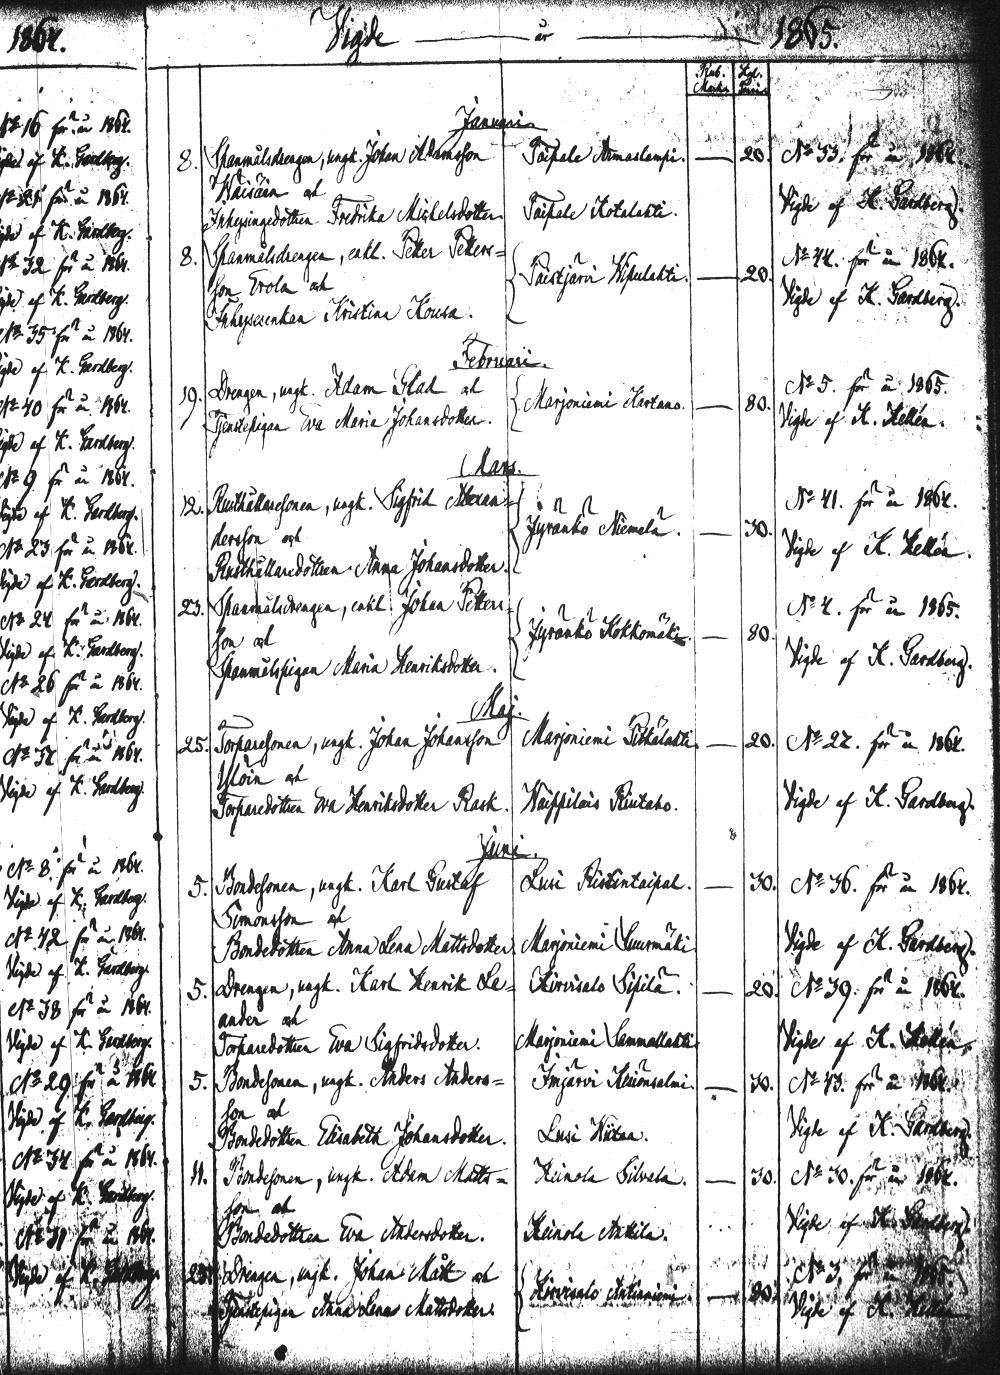 1864.
Vigde år 1865.
Rub. Kop.
Januari.
8. Spanmålsdrengen, ungk. Johan Adamsson Taipale Armaslampi. — 20. No 53. för år 1864.
Wäisäin och
Inhysingedottren Fredrika Michelsdotter Taipale Kotalahti. Vigde af K. Gardberg.
8. Spanmålsdrengen, enkl. Petter Petters=
son Erola och Paistjärvi Wipulahti. — 20. No 44. för år 1864.
Inhysesenkan Kristina Kousa. Vigde af K. Gardberg.
Februari.
19. Drengen, ungk. Adam Glad och Marjoniemi Kartano. — 80. No 5. för år 1865.
Tjenstepigan Eva Maria Johansdotter. Vigde af K. Hellén.
Mars.
12. Rusthållaresonen, ungk. Sigfrid Alexan=
dersson och Jyränkö Niemelä. — 30. No 41. för år 1864.
Rusthållaredottren Anna Johansdotter. Vigde af K. Hellén.
23. Spanmålsdrengen, enkl. Johan Petters=
son och Jyränkö Kokkomäki. — 80. No 4. för år 1865.
Spanmålspigan Maria Henriksdotter. Vigde af K. Gardberg.
Maj.
25. Torparesonen, ungk. Johan Johansson Marjoniemi Pitkälahti. — 20. No 27. för år 1864.
och
Torparedottren Eva Henriksdotter Rask. Waippilais Riutaho. Vigde af K. Gardberg.
Juni.
5. Bondesonen, ungk. Karl Gustaf Lusi Ristintaipal. — 30. No 36. för år 1864.
Simonsson och
Bondedottren Anna Lena Mattsdotter. Marjoniemi Suurmäki Vigde af K. Gardberg.
5. Drengen, ungk. Karl Henrik Le=
ander och Hirvisalo Sipilä. — 20. No 39. för år 1864.
Torparedottren Eva Sigfridsdotter. Marjoniemi Sammallahti Vigde af K. Hellén.
5. Bondesonen, ungk. Anders Anders=
son och Imjärvi — 30. No 43. för år 1864.
Bondedottren Elisabeth Johansdotter. Lusi Vigde af K. Gardberg.
11. Bondesonen, ungk. Adam Matts=
son och Heinola Silvala. — 30. No 30. för år 1864.
Bondedottren Eva Andersdotter. Heinola Anttila. Vigde af K. Gardberg.
25. Drengen, ungk. Johan Mått och Hirvisalo Anttinniemi. — 20. No 3. för år 1865
Tjenstepigan Anna Lena Mattsdotter. Vigde af K. Hellén
No 16 för år 1864.
Vigde af K. Gardberg.
för år 1864.
Vigde af K. Gardberg.
No 32 för år 1864.
Vigde af K. Gardberg.
No 35 för år 1864.
Vigde af K. Gardberg.
No 40 för år 1864.
Vigde af K. Gardberg.
No 9 för år 1864.
Vigde af K. Gardberg.
No 23 för år 1864.
Vigde af K. Gardberg.
No 24 för år 1864.
Vigde af K. Gardberg.
No 26 för år 1864.
Vigde af K. Gardberg.
No 37 för år 1864.
Vigde af K. Gardberg.
No 8 för år 1864.
Vigde af K. Gardberg.
No 42 för år 1864.
Vigde af K. Gardberg.
No 38 för år 1864.
Vigde af K. Gardberg.
No 29 för år 1864
Vigde af K. Gardberg.
No 34 för år 1864.
Vigde af K. Gardberg.
No 31 för år 1864.
Vigde af K. Gardberg.